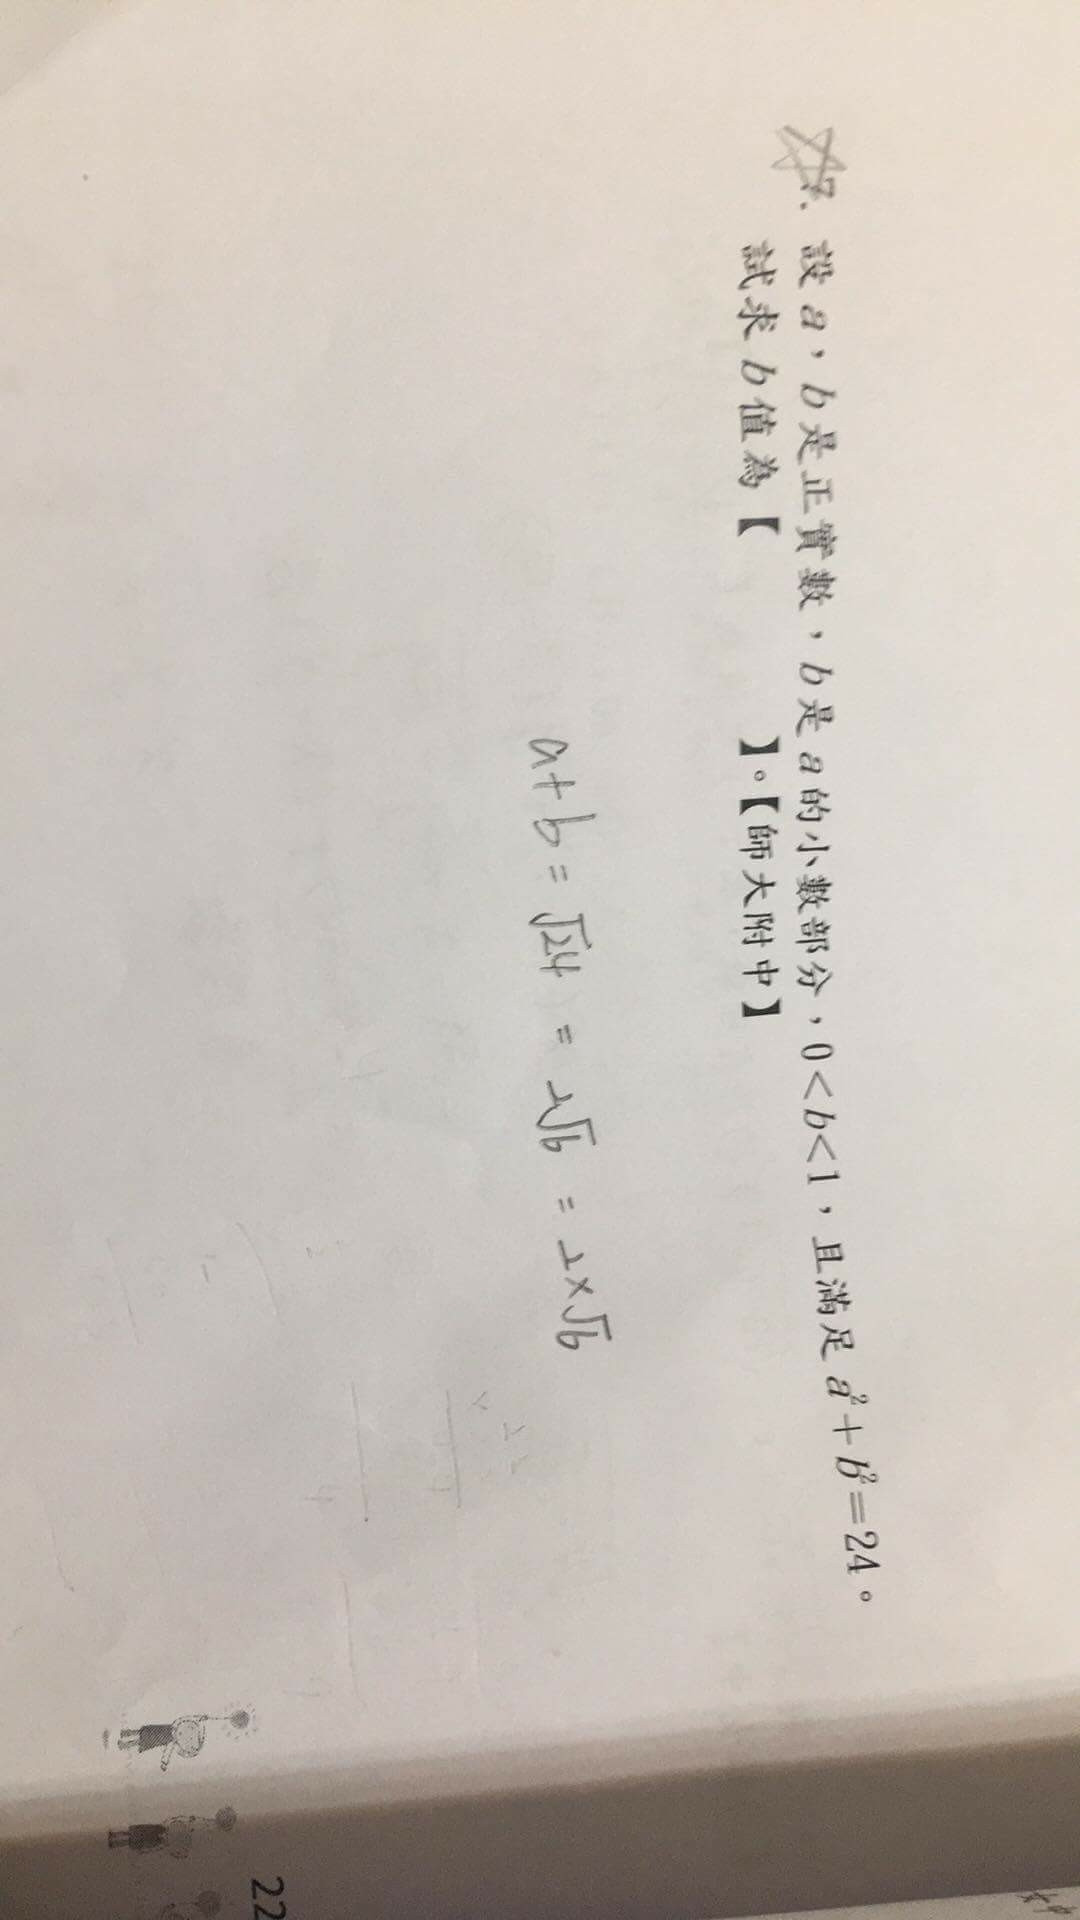 7. 設 a，b 是正實數，b 是 a 的小數部分，0＜b＜1，且滿足 a²＋b²＝24。
試求 b 值為【　　　】。【師大附中】
a+b=√24 = 2√6 = 2×√6
22